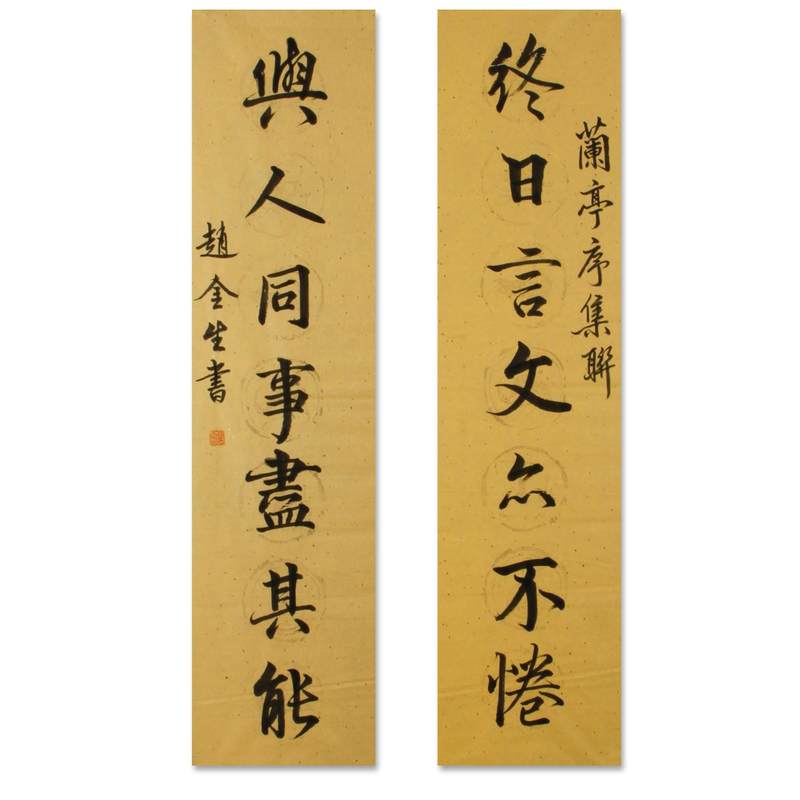 蘭亭序集聯
終日言文亦不惓
與人同事盡其能
趙金生書